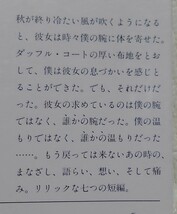 秋が終り冷たい風が吹くようになる
と、彼女は時々僕の腕に体を寄せた。
ダッフル・コートの厚い布地をとお
して、僕は彼女の息づかいを感じと
ることができた。でも、それだけだ
った。彼女の求めているのは僕の腕
ではなく、誰かの腕だった。僕の温
もりではなく、誰かの温もりだった
……。もう戻っては来ないあの時の、
まなざし、語らい、想い、そして痛
み。リリックな七つの短編。